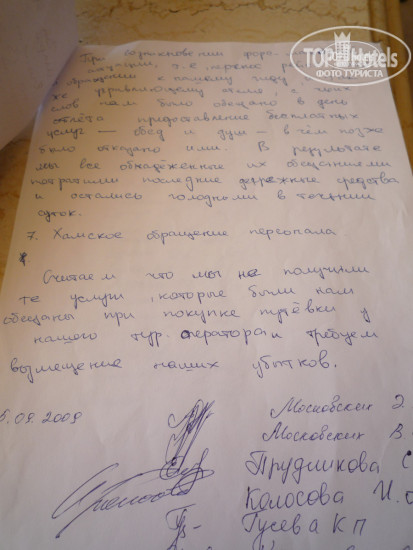 При возникновении форс
ситуации, т.е.
обращении к нашему гиду,
же управляющему отеля,
слов нам было обещано в день
отлёта предоставление бесплатных
услуг — обед и душ — в чём позже
было отказано ими. В результате
мы все обнадёженные их обещаниями
потратили последние денежные средства
и остались голодными в течении
суток.
7. Хамское обращение персонала
Считаем что мы не получили
те услуги, которые были нам
обещаны при покупке путёвки у
нашего тур. оператора и требуем
возмещение наших убытков.
5.09.2009
Московских Э.
Московских В.
Прудникова С
Колосова И.
Гусева К П
TOP Hotels
ФОТО ТУРИСТА